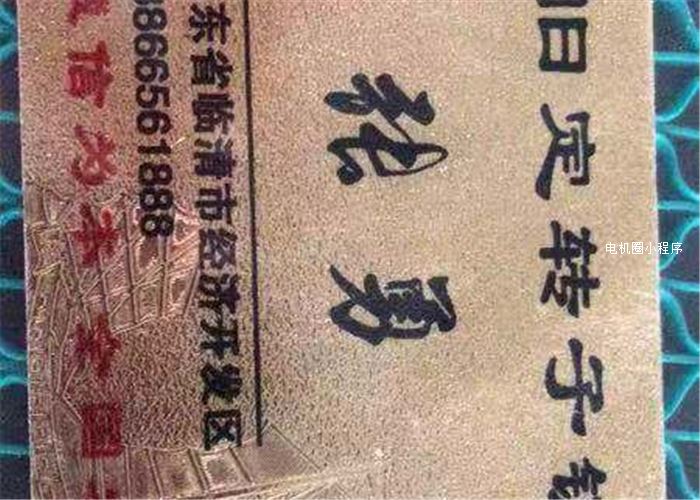 旧定转子
勇
东省临清市经济开发区
866561888
信为本 全国
电机圈小程序